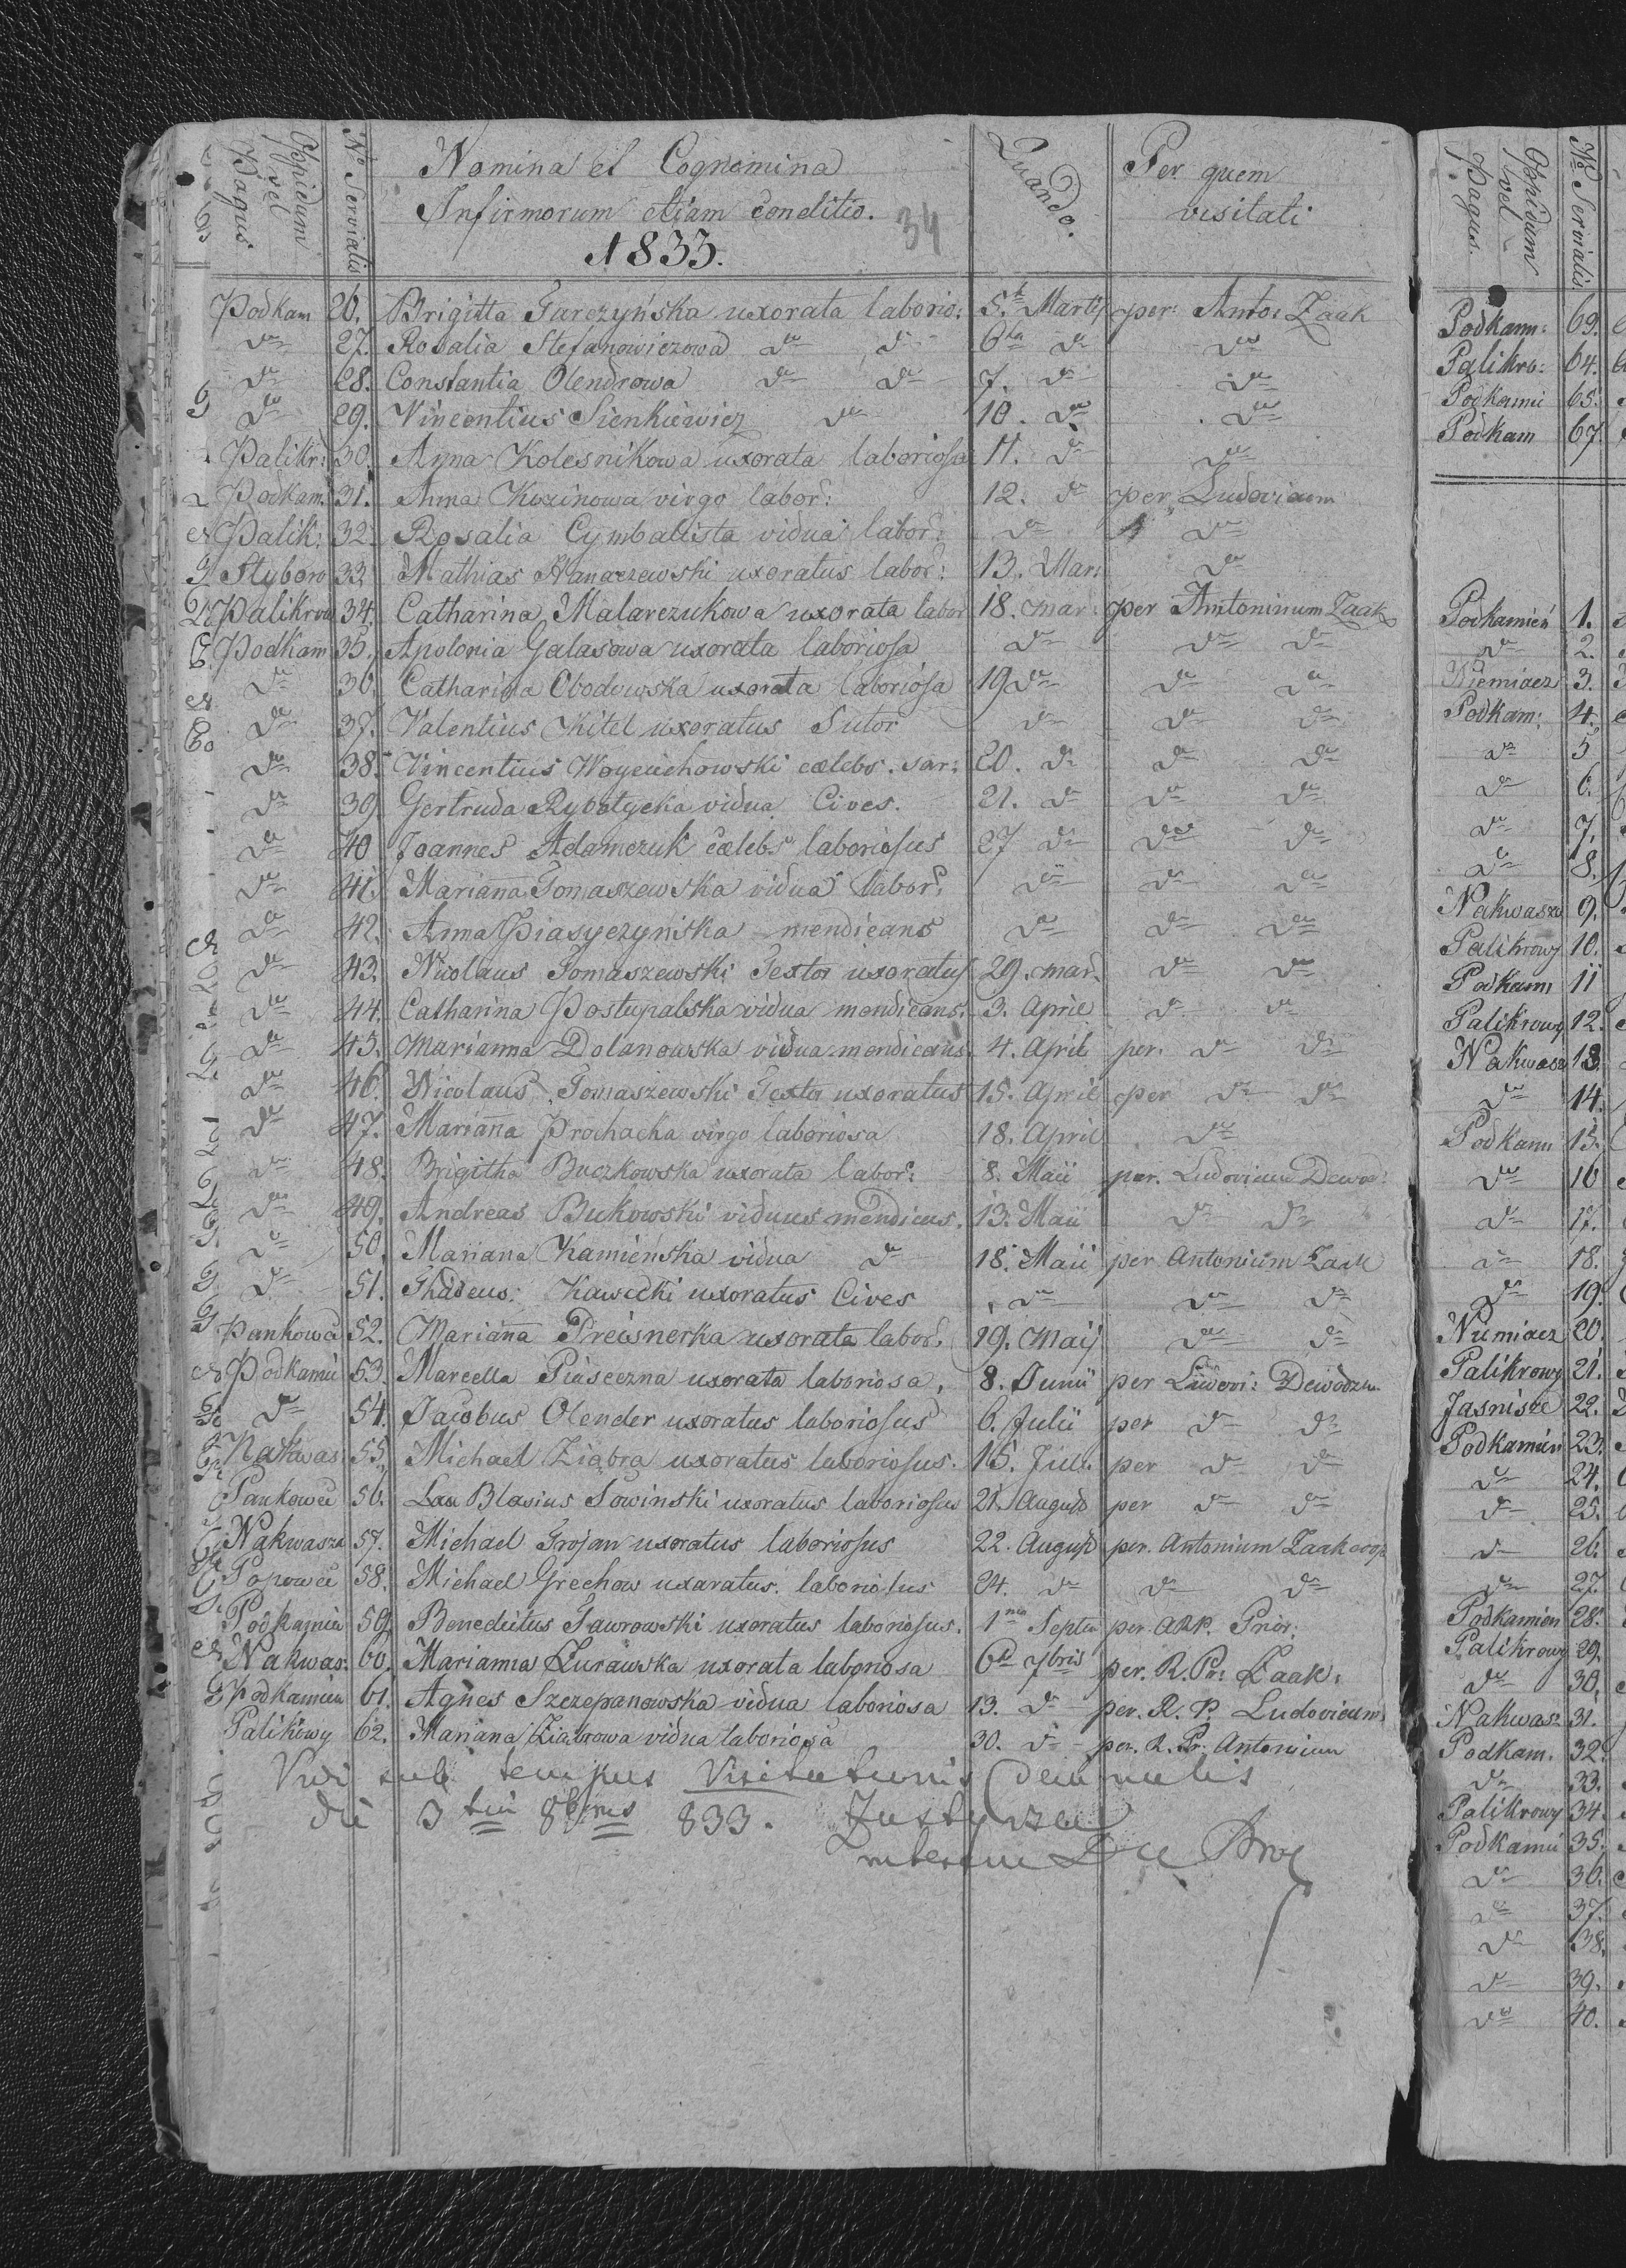 Oppidum vel Pagus. Nº Servialis Nomina et Cognomina Quando. Per quem
Infirmorum etiam conditio. visitati
34
1833.
Podkam 26. Brigitta Garczyńska uxorata laborio: 5. Martij per: Anto: Zaak
dº 27. Rosalia Stefanowiczowa dº dº 6ta dº dº
dº 28. Constantia Olendrowa dº dº 7. dº dº
dº 29. Vincentius Sienkiewicz dº 10. dº dº
Palikr: 30. Anna Kolesnikowa uxorata laboriosa 11. dº dº
Podkam: 31. Anna Kozinowa virgo labor: 12. dº per Ludovicum
Palik: 32. Rosalia Cymbalista vidua labor: dº dº
Styboro 33. Mathias Hanaczewski uxoratus labor: 13. Mar: dº
Palikrow 34. Catharina Malarczukowa uxorata labor 18. mar: per Antoninum Zaak
Podkam 35. Apolonia Galasowa uxorata laboriosa dº dº dº
dº 36. Catharina Obodowska uxorata laboriosa 19 dº dº dº
dº 37. Valentius Kitel uxoratus Sutor dº dº dº
dº 38. Vincentius Woyciichowski cælebs. sar: 20. dº dº dº
dº 39. Gertruda Rybotycka vidua Cives. 21. dº dº dº
dº 40 Joannes Adamczuk cælebs laboriosus 27 dº dº dº
dº 41. Marianna Tomaszewska vidua labor: dº dº dº
dº 42. Anna Piasyczyńska mendicans dº dº dº
dº 43. Nicolaus Tomaszewski Textor uxoratus 29. mar. dº dº
dº 44. Catharina Postupalska vidua mendicans. 3. April dº dº
dº 45. Marianna Dolanowska vidua mendicans. 4. April per. dº dº
dº 46. Nicolaus Tomaszewski Textor uxoratus 15. April per dº dº
dº 47. Marianna Prochacka virgo laboriosa 18. April dº
dº 48. Brigitha Buczkowska uxorata labor: 8. Maii per. Ludovicum Dewod:
dº 49. Andreas Bukowski viduus mendicus. 13. Maii dº dº
dº 50. Mariana Kamieńska vidua dº 18. Maii per Antonium Zaak
dº 51. Thadeus: Kawecki uxoratus Cives dº dº dº
Pankowce 52. Marianna Preisnerka uxorata labor. 19. Maij dº dº
Podkamiń 53. Marcella Piaseczna uxorata laboriosa, 8. Junii per Ludovi: Dewodz
dº 54. Jacobus Olender uxoratus laboriosus 6. Julii per dº dº
Nakwas: 55. Michael Ziabra uxoratus laboriosus. 15. Jul. per dº dº
Pankowce 56. Blasius Sowinski uxoratus laboriosus 21. August per dº dº
Nakwasza 57. Michael Trojan uxoratus laboriosus 22. August per. Antonium Zaak coop
Popowce 58. Michael Grechow uxaratus. laboriosus 24. dº dº dº
Podkamiń 59. Benedictus Gawrowski uxoratus laboriosus. 1ma Septem per. ARP. Prior.
Nakwas: 60. Marianna Zurawska uxorata laboriosa 6ta 7bris per. R. Pr: Zaak.
Podkamien 61. Agnes Szczepanowska vidua laboriosa 13. dº per. R. P. Ludovicum
Palikrowy 62. Mariana Ziabrowa vidua laboriosa 30. dº per. R. Pr. Antonium
Vidi sub tempus Visitationis Decanalis
die 8bris 833.
Oppidum vel Pagus. Nº Servialis
Podkam: 69.
Palikro: 64.
Podkamń 65.
Podkam 67.
Podkamień 1.
dº 2.
3.
Podkam: 4.
dº 5
dº 6.
dº 7,
dº 8.
Nakwasza 9.
Palikrowy 10.
Podkam 11
Palikrowy 12.
Nakwasz 13.
dº 14.
Podkam 15.
dº 16
dº 17.
dº 18.
dº 19.
Niemiacz 20.
Palikrowy 21.
Jasnisce 22.
Podkamień 23.
dº 24.
dº 25.
dº 26.
dº 27
Podkamien 28.
Palikrowy 29.
dº 30.
Nakwasz 31.
Podkam. 32.
dº 33.
Palikrowy 34.
Podkamń 35.
dº 36.
dº 37.
dº 38.
dº 39.
dº 40.